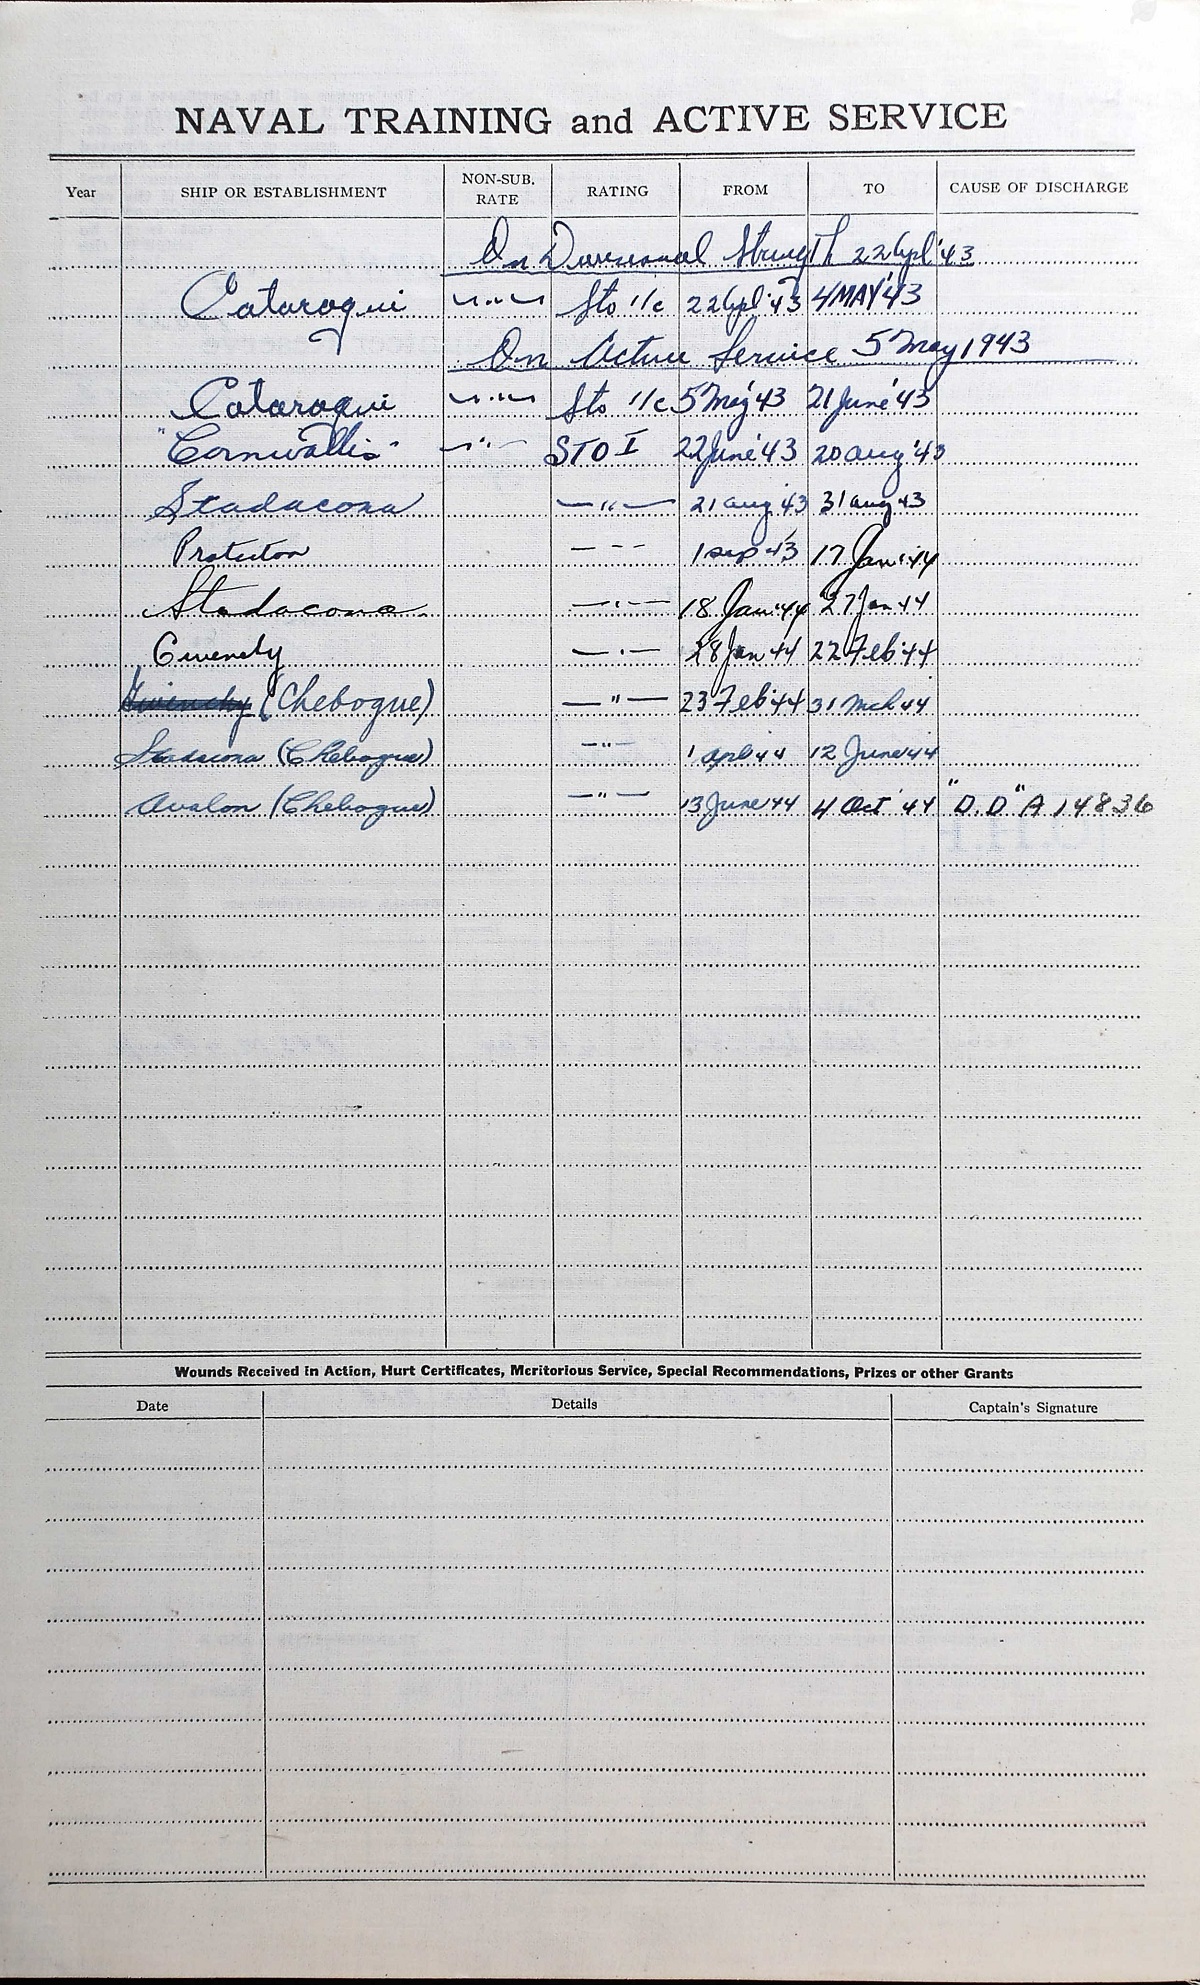 NAVAL TRAINING and ACTIVE SERVICE
Year SHIP OR ESTABLISHMENT NON-SUB. RATE RATING FROM TO CAUSE OF DISCHARGE
On Divisional Strength 22 Apl '43
Cataroqui ~ " ~ Sto 1/c 22 Apl '43 4 MAY '43
On Active Service 5 May 1943
Cataroqui ~ " ~ Sto 1/c 5 May '43 21 June '43
"Cornwallis" — " — STO I 22 June '43 20 Aug '43
Stadacona — " — 21 Aug '43 31 Aug 43
Protector — — — 1 Sep 43 17 Jan '44
Stadacona — " — 18 Jan '44 27 Jan 44
Givenchy — " — 28 Jan 44 22 Feb 44
Givenchy (Chebogue) — " — 23 Feb 44 31 Mch 44
Stadacona (Chebogue) — " — 1 Apl 44 12 June 44
Avalon (Chebogue) — " — 13 June 44 4 Oct '44 "D.D" A 14836
Wounds Received in Action, Hurt Certificates, Meritorious Service, Special Recommendations, Prizes or other Grants
Date Details Captain's Signature